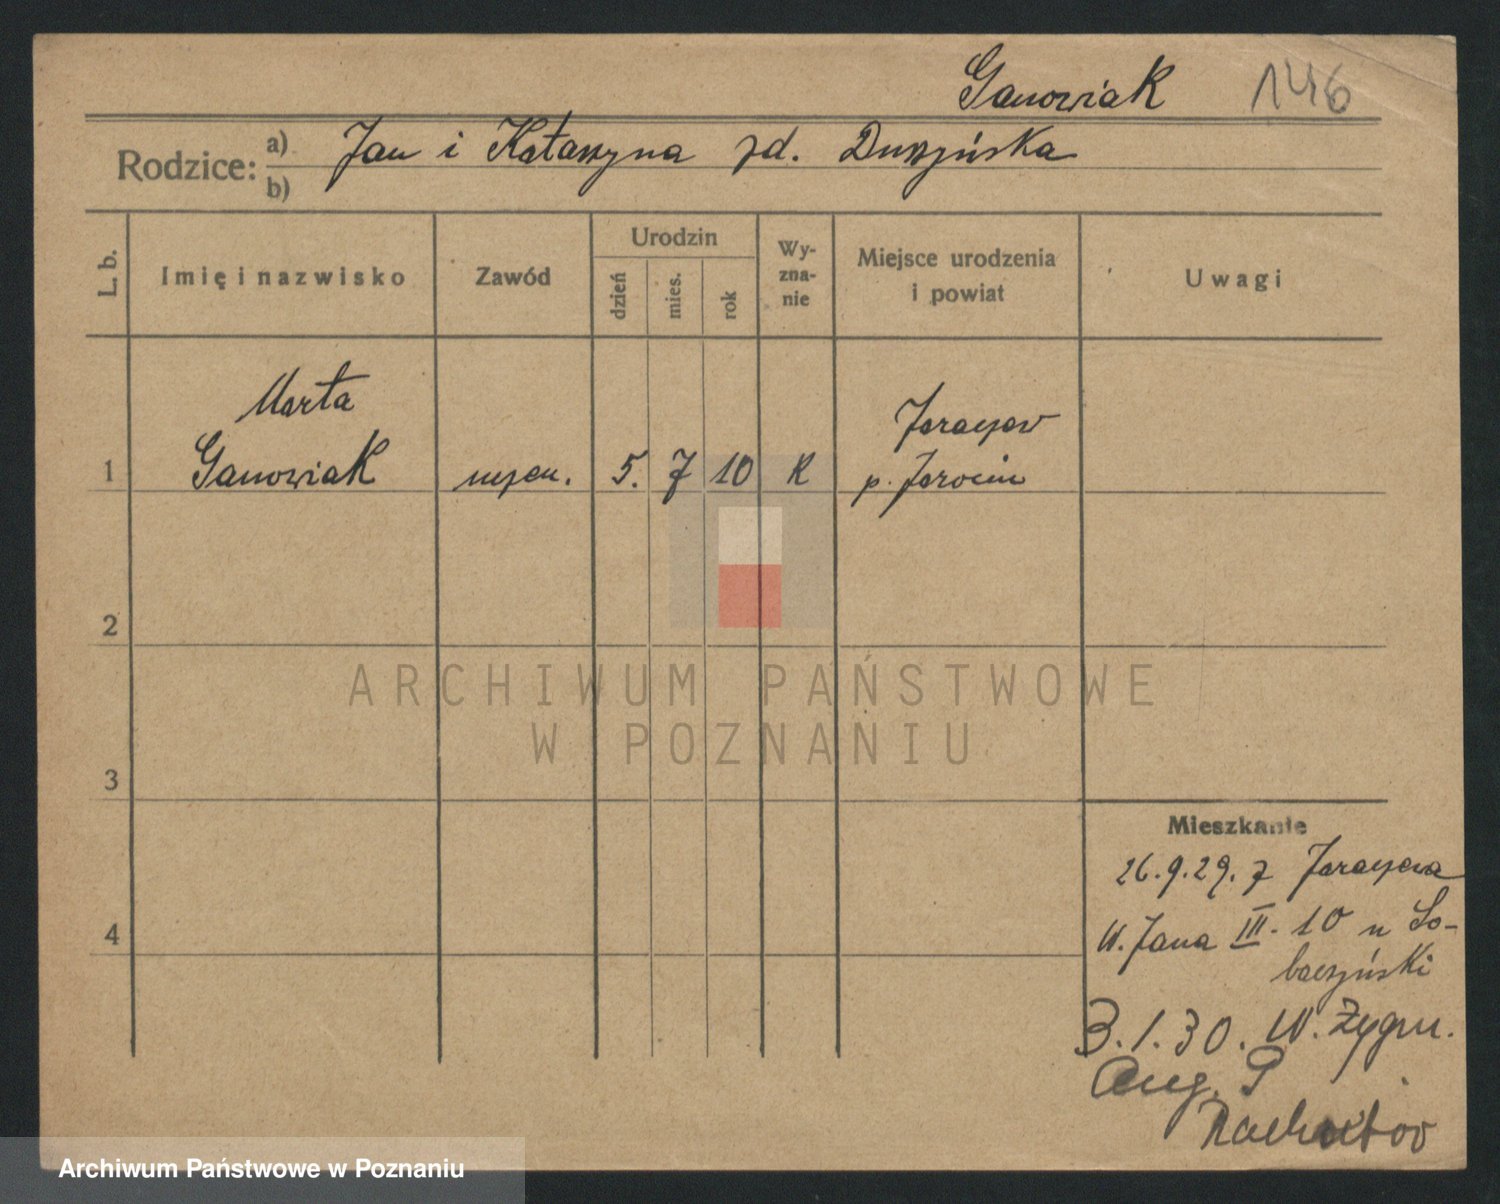 Ganowiak 146
Rodzice: a) Jan i Katarzyna zd. Duszyńska
b)
L. b.
Imię i nazwisko
Zawód
Urodzin
dzień
mies.
rok
Wy-
zna-
nie
Miejsce urodzenia
i powiat
Uwagi
Marta
Ganowiak
1
uczen.
5. 7 10
K
Jaraczew
p. Jarocin
2
3
4
ARCHIWUM PAŃSTWOWE
W POZNANIU
Mieszkanie
26.9.29. z Jaraczewa
W. Jana III. 10 u So-
baszyński
3.1.30. W. Zygm.
Aug. 9
Archiwum Państwowe w Poznaniu